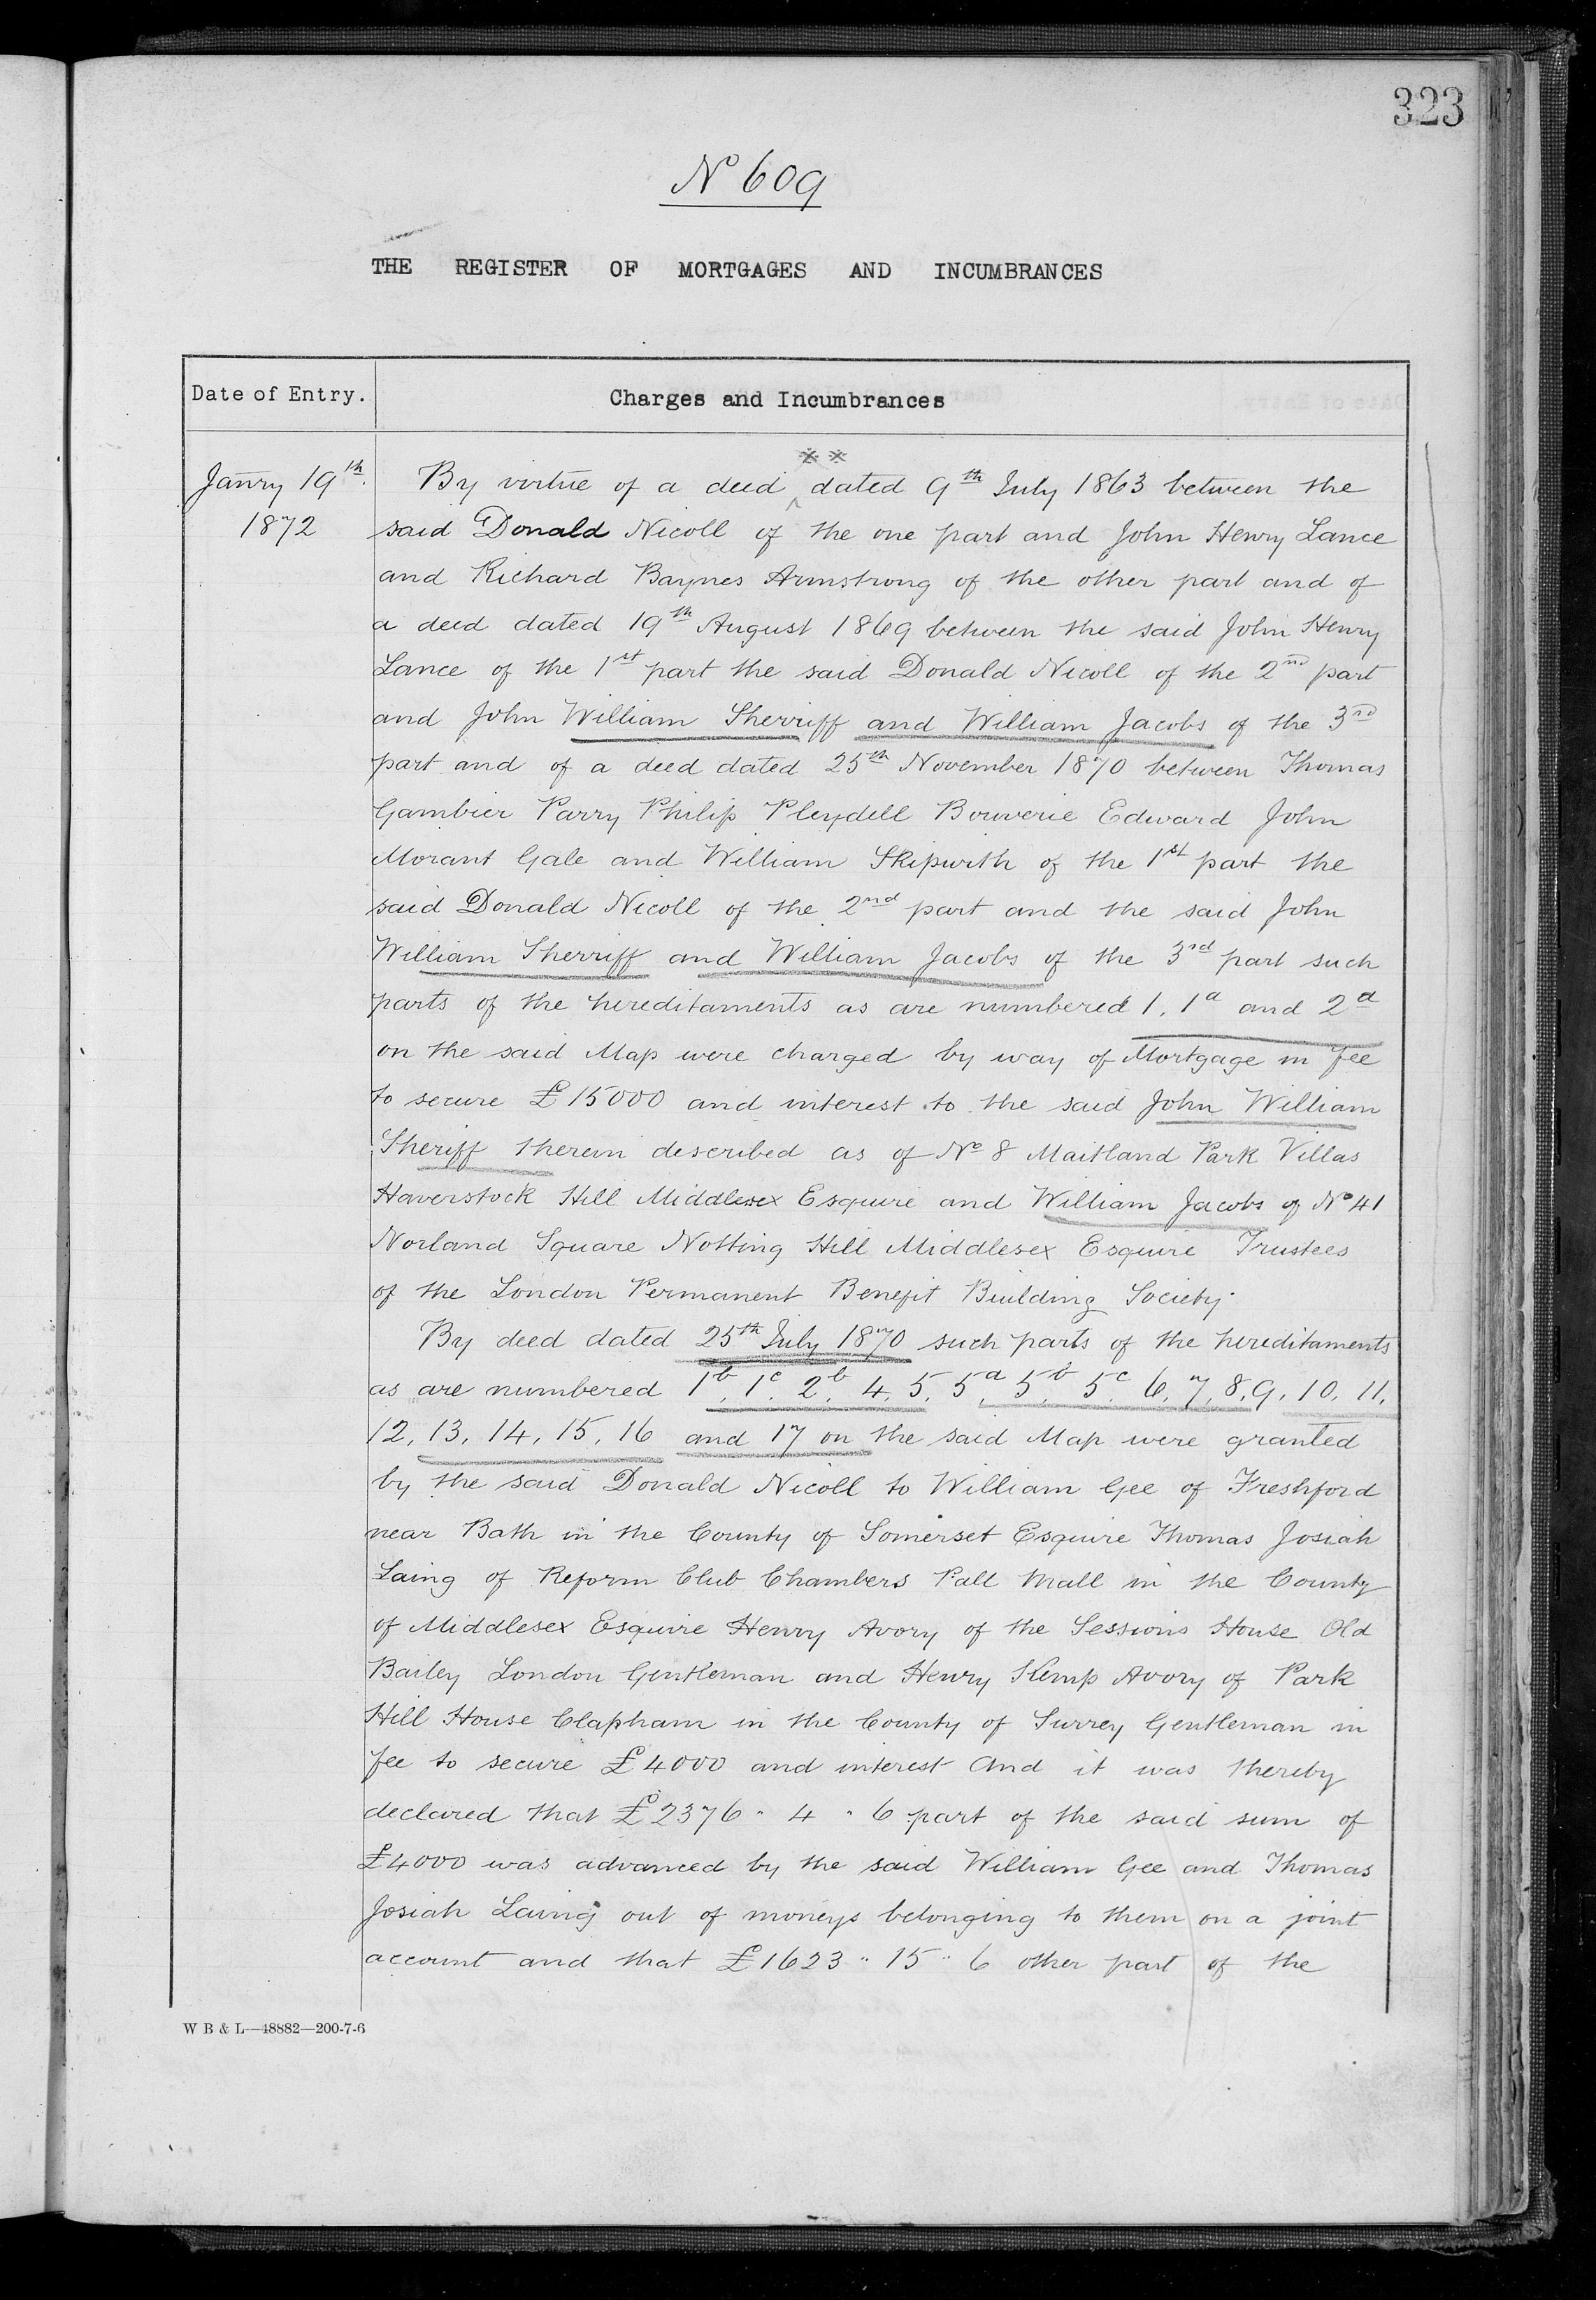 323
No 609
THE REGISTER OF MORTGAGES AND INCUMBRANCES
Date of Entry.
Charges and Incumbrances
Janry 19th
1872
**
By virtue of a deed dated 9th July 1863 between the
said Donald Nicoll of the one part and John Henry Lance
and Richard Baynes Armstrong of the other part and of
a deed dated 19th August 1869 between the said John Henry
Lance of the 1st part the said Donald Nicoll of the 2nd part
and John William Sherriff and William Jacobs of the 3rd
part and of a deed dated 25th November 1870 between Thomas
Gambier Parry Philip Pleydell Bouverie Edward John
Morant Gale and William Skipwith of the 1st part the
said Donald Nicoll of the 2nd part and the said John
William Sherriff and William Jacobs of the 3rd part such
parts of the hereditaments as are numbered 1, 1a and 2a
on the said Map were charged by way of Mortgage in fee
to secure £15000 and interest to the said John William
Sheriff therein described as of No 8 Maitland Park Villas
Haverstock Hill Middlesex Esquire and William Jacobs of No 41
Norland Square Notting Hill Middlesex Esquire Trustees
of the London Permanent Benefit Building Society.
By deed dated 25th July 1870 such parts of the hereditaments
as are numbered 1b, 1c, 2b, 4, 5, 5a, 5b, 5c, 6, 7, 8, 9, 10, 11,
12, 13, 14, 15, 16 and 17 on the said Map were granted
by the said Donald Nicoll to William Gee of Freshford
near Bath in the County of Somerset Esquire Thomas Josiah
Laing of Reform Club Chambers Pall Mall in the County
of Middlesex Esquire Henry Avory of the Sessions House Old
Bailey London Gentleman and Henry Kemp Avory of Park
Hill House Clapham in the County of Surrey Gentleman in
fee to secure £4000 and interest And it was thereby
declared that £2376 " 4 " 6 part of the said sum of
£4000 was advanced by the said William Gee and Thomas
Josiah Laing out of moneys belonging to them on a joint
account and that £1623 " 15 " 6 other part of the
W B & L—48882—200-7-6